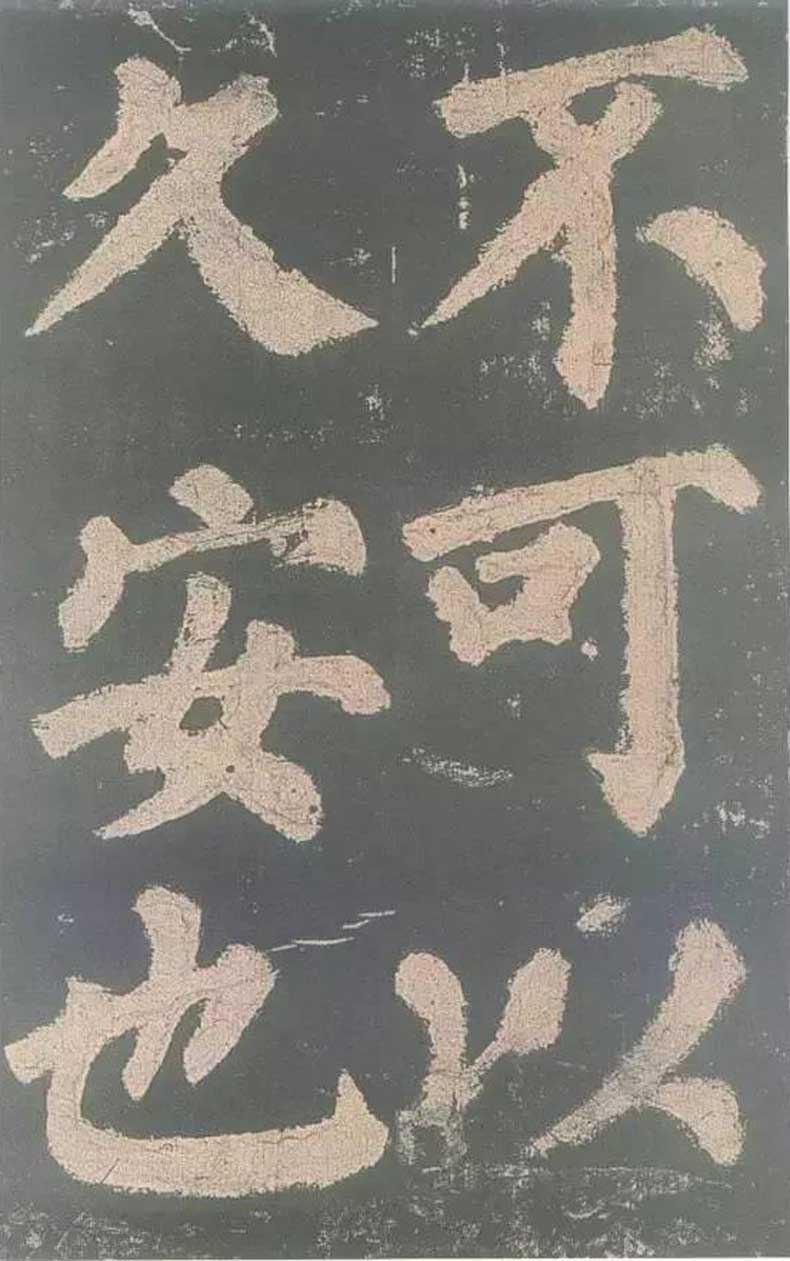 不可以
久安也